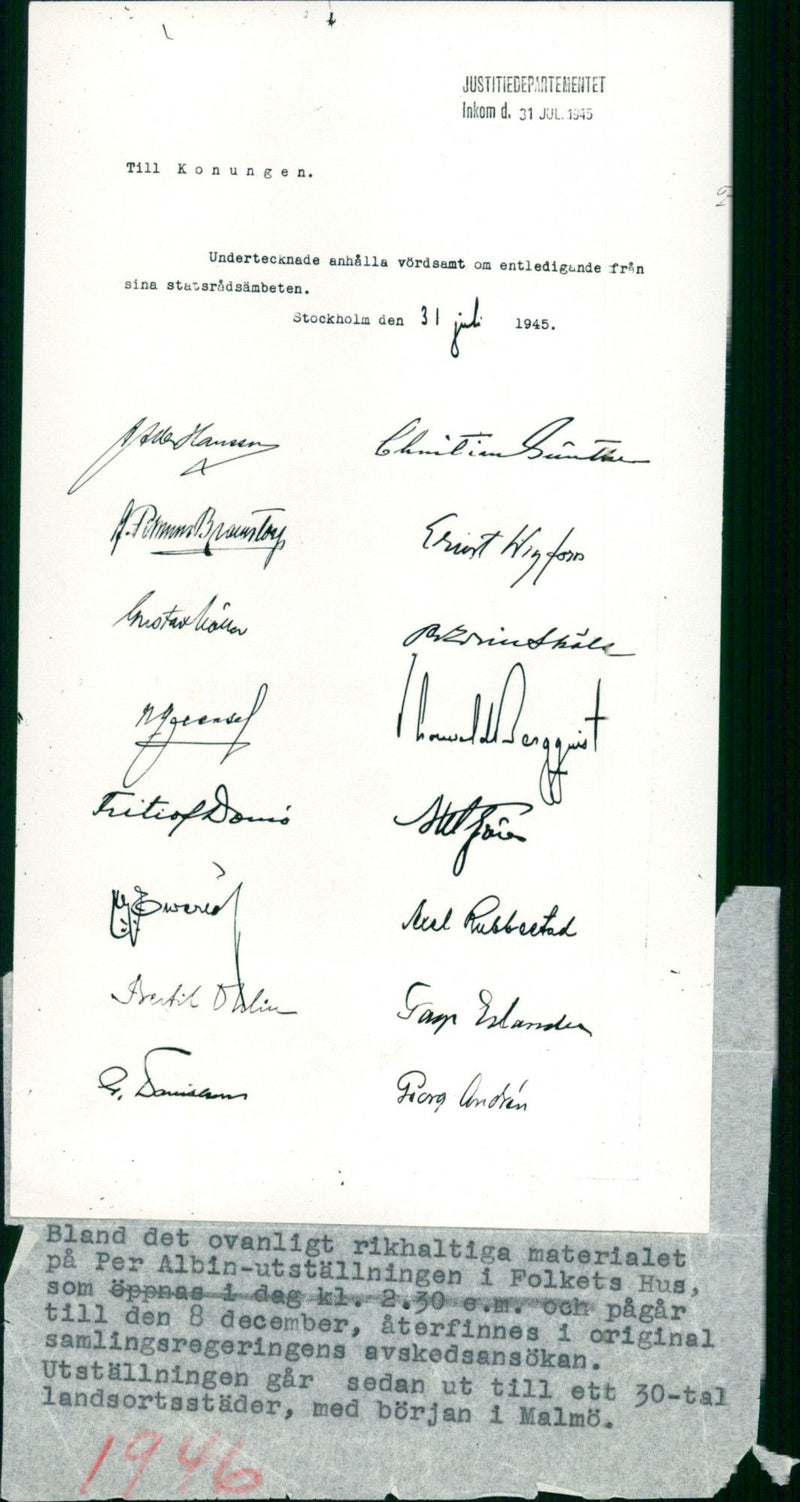 JUSTITIEDEPARTEMENTET
Inkom d. 31 JUL. 1945
Till Konungen.
Undertecknade anhålla vördsamt om entledigande från
sina statsrådsämbeten.
Stockholm den 31 juli 1945.
Hansson Christian Günther
Ernst Wigforss
Gustav Möller Per Edvin Sköld
Thorwald Bergquist
Fritiof Domö Axel Gjöres
Ewerlöf Axel Rubbestad
Bertil Ohlin Tage Erlander
G. Danielson Georg Andrén
Bland det ovanligt rikhaltiga materialet
på Per Albin-utställningen i Folkets Hus,
som öppnas i dag kl. 2.30 e.m. och pågår
till den 8 december, återfinnes i original
samlingsregeringens avskedsansökan.
Utställningen går sedan ut till ett 30-tal
landsortsstäder, med början i Malmö.
1946